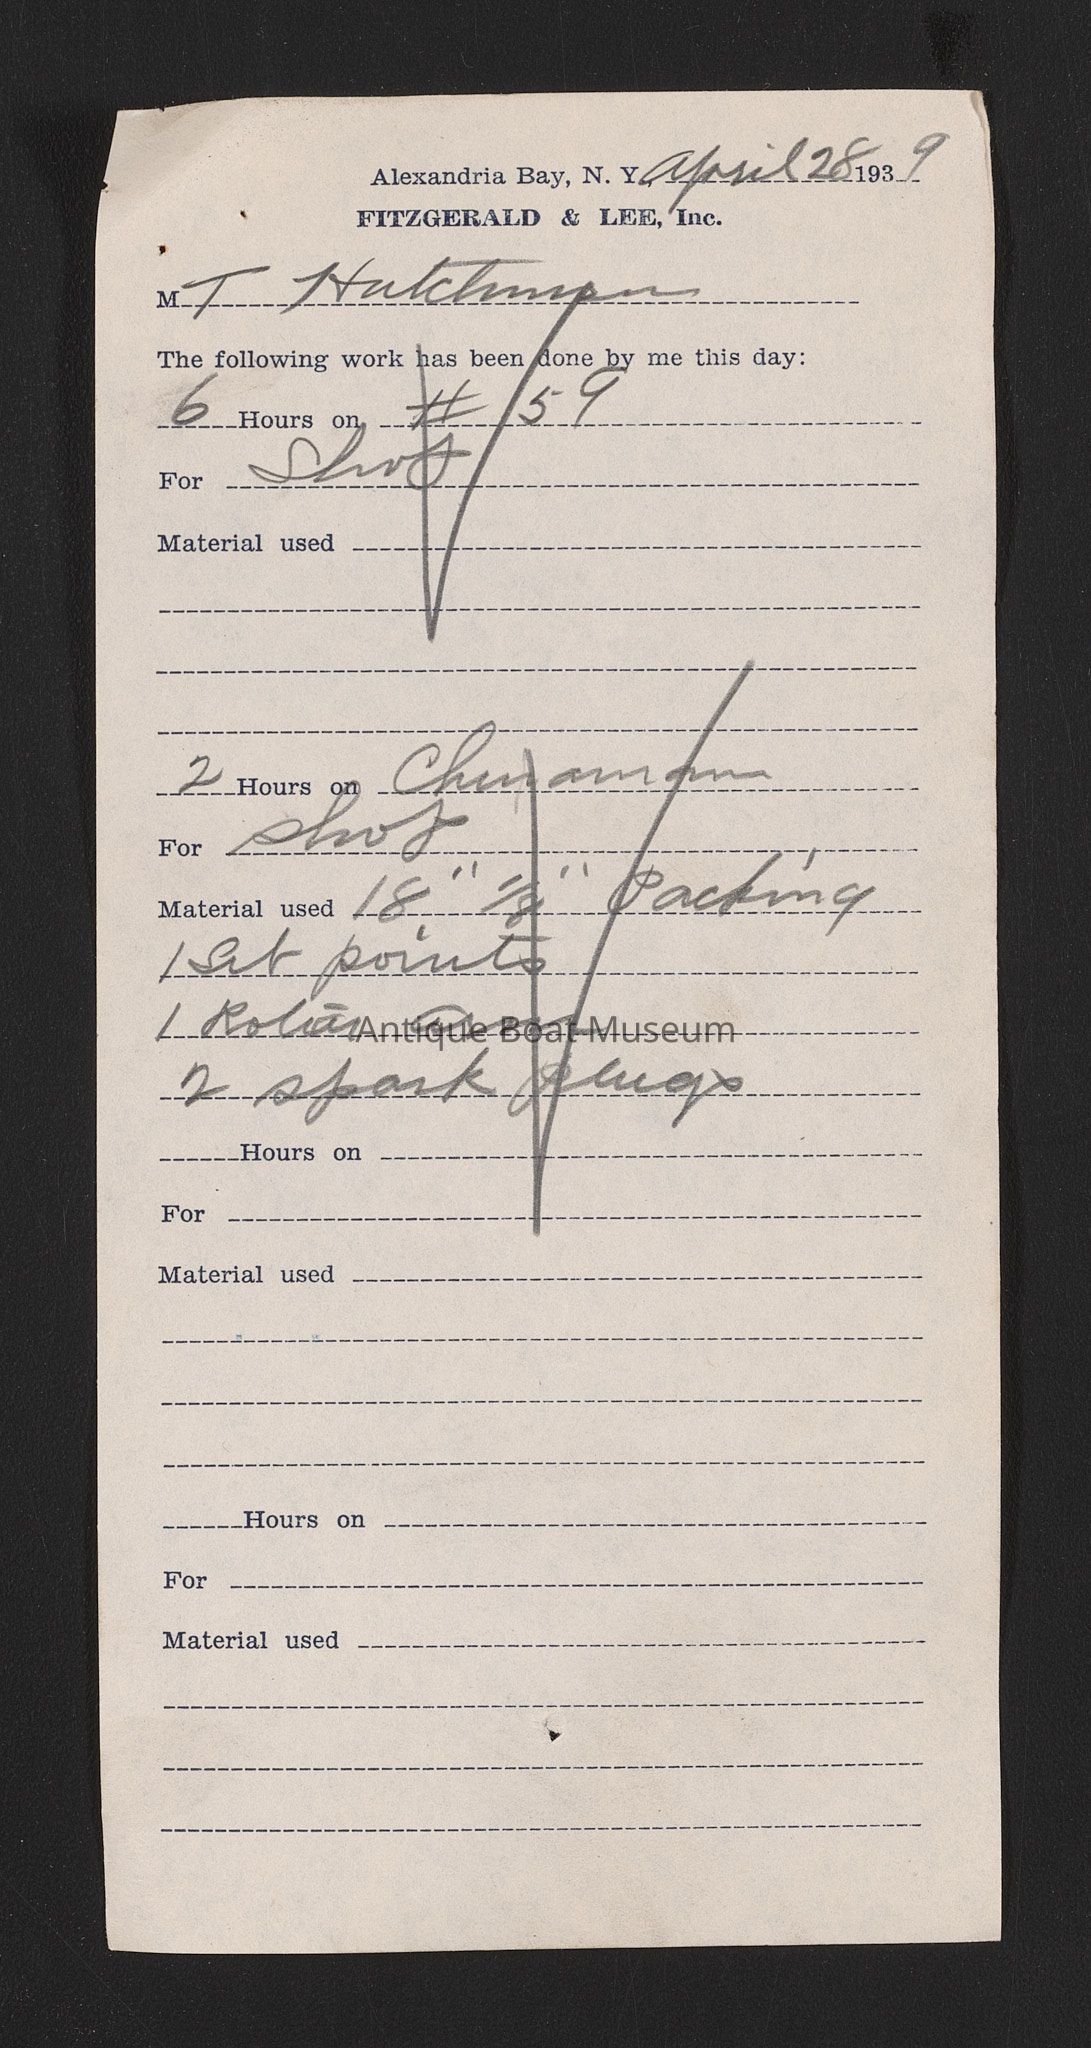 Alexandria Bay, N. Y. April 28 1939
FITZGERALD & LEE, Inc.
M T Hutchinson
The following work has been done by me this day:
6 Hours on # 59
For Shop
Material used
2 Hours on
For shop
Material used 18" 1/8" Packing
1 Set points
1 Rotor
Antique Boat Museum
2 spark plugs
Hours on
For
Material used
Hours on
For
Material used